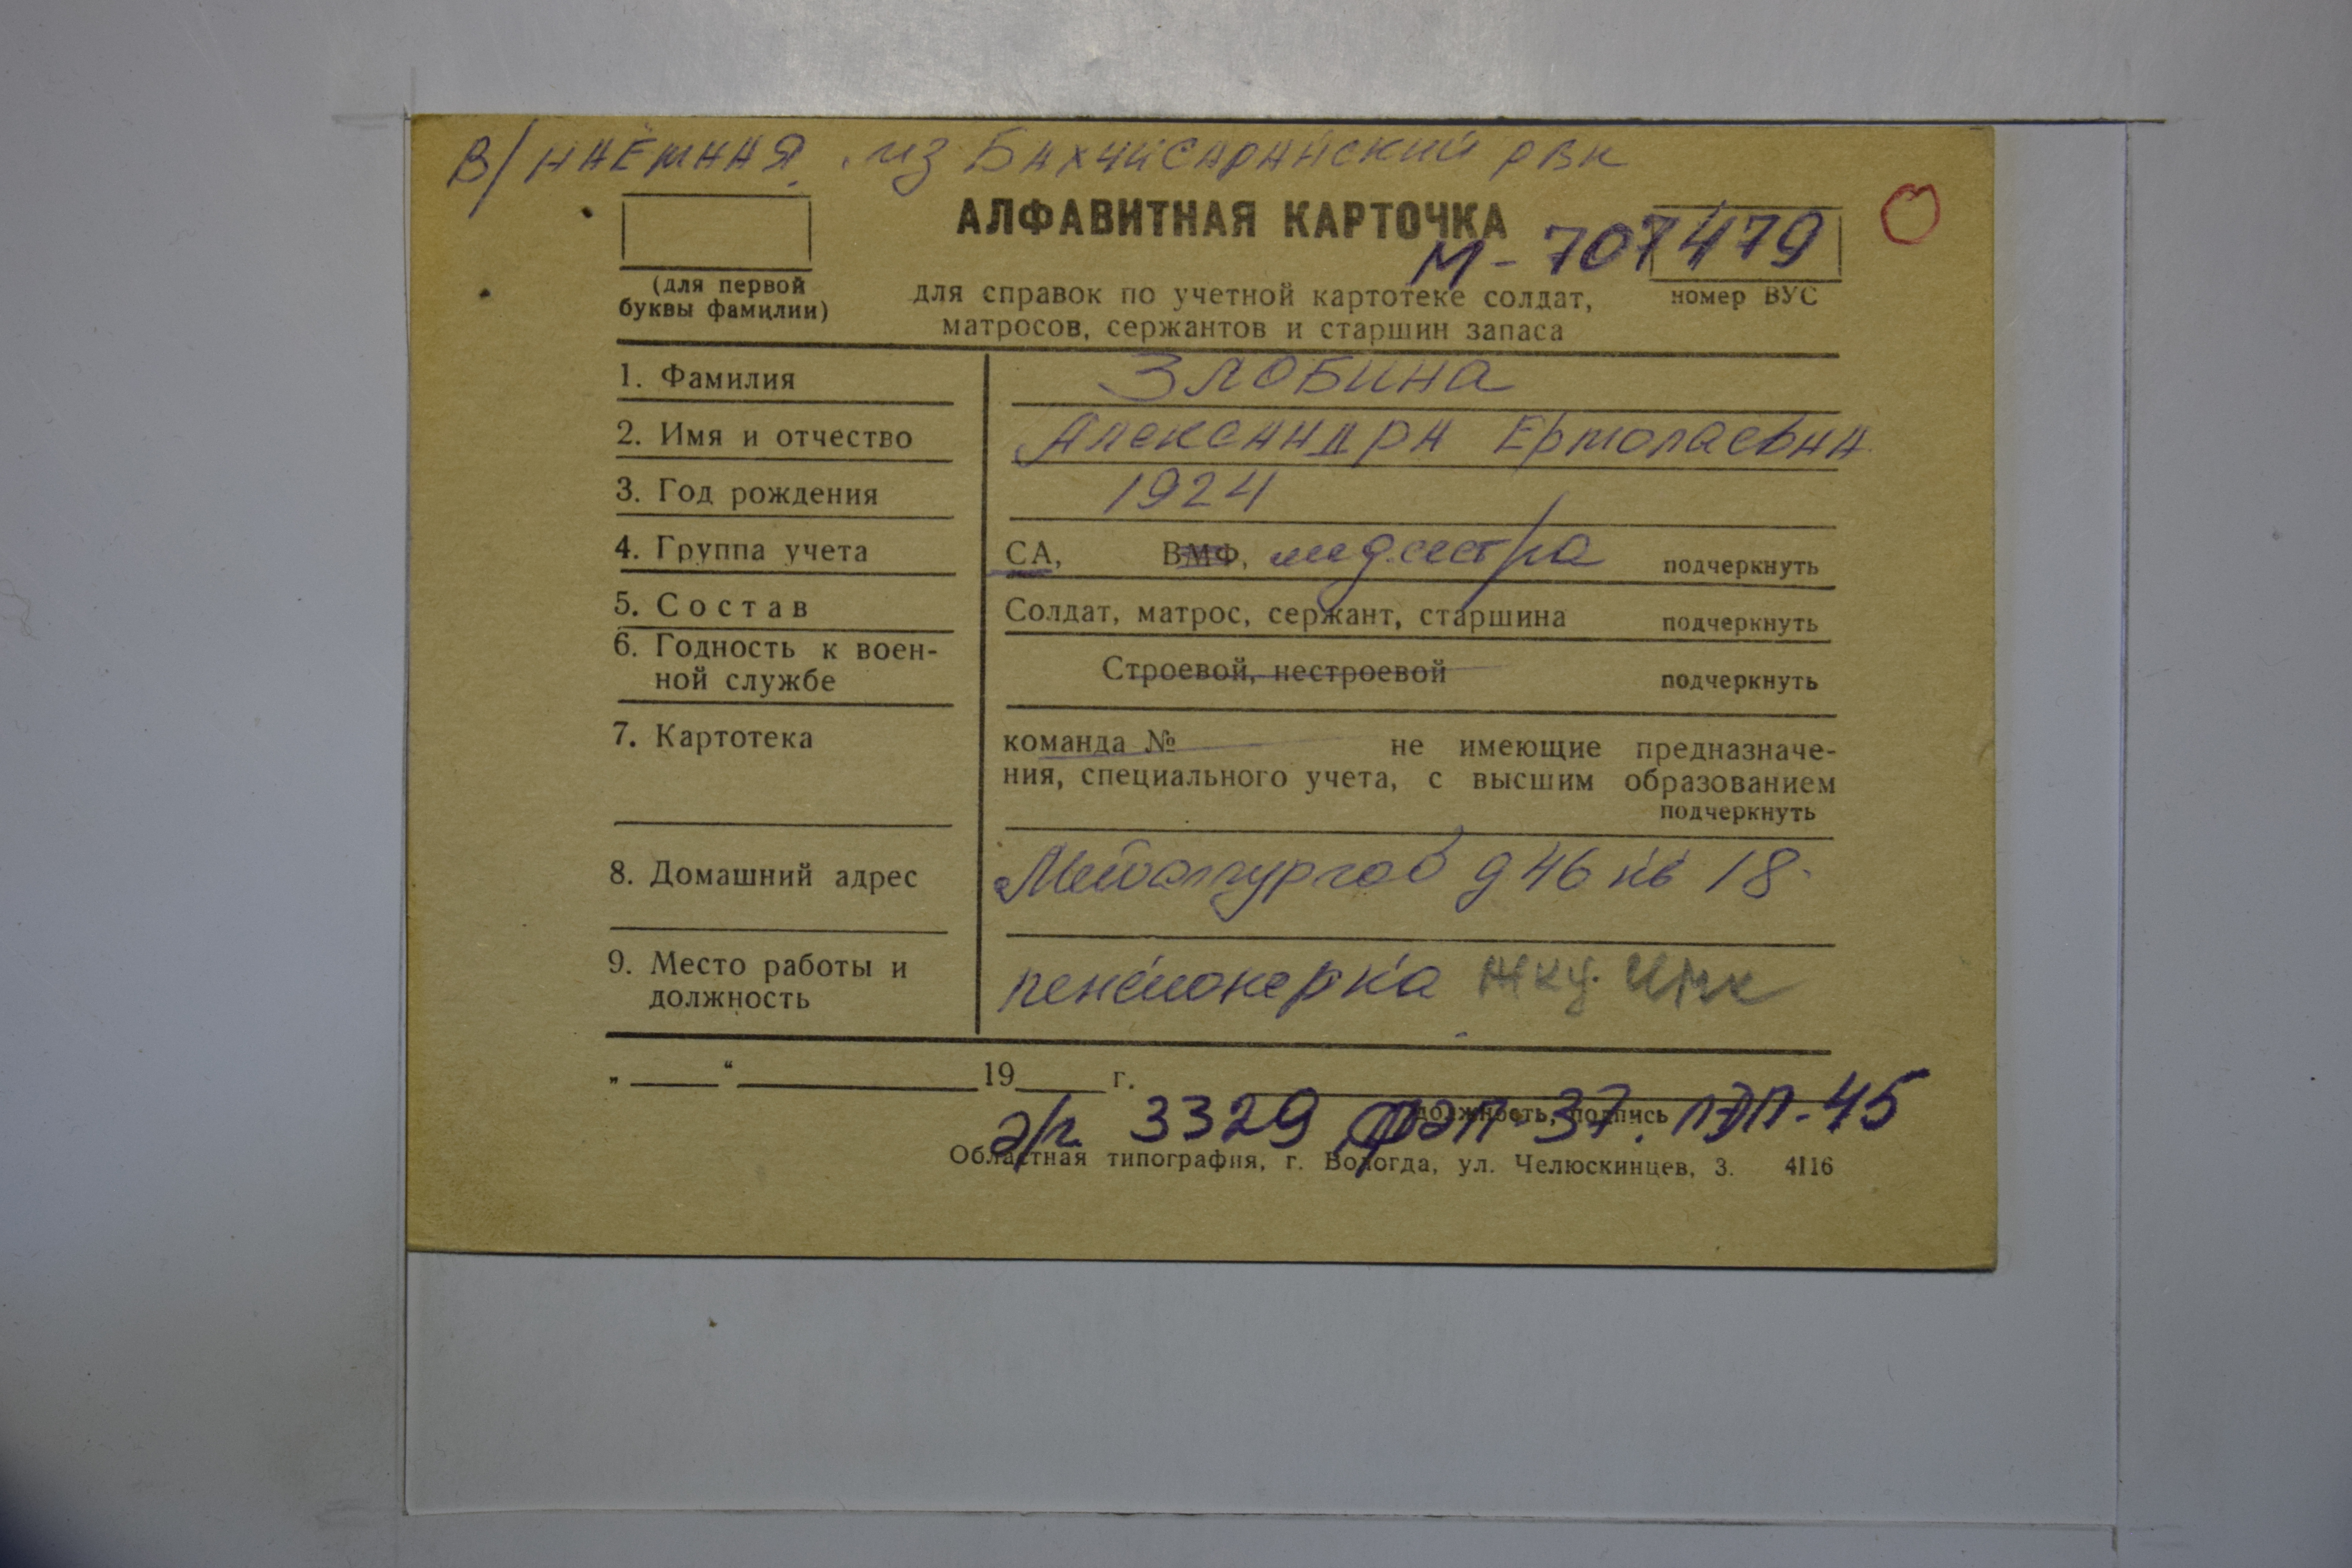 В/НАЁМНАЯ. из БАХЧИСАРАЙСКИЙ РВК
АЛФАВИТНАЯ КАРТОЧКА
М-707479
(для первой
буквы фамилии)
для справок по учетной картотеке солдат,
матросов, сержантов и старшин запаса
номер ВУС
1. Фамилия ЗЛОБИНА
2. Имя и отчество Александра Ермолаевна
3. Год рождения 1924
4. Группа учета СА, ВМФ, медсестра подчеркнуть
5. Состав Солдат, матрос, сержант, старшина подчеркнуть
6. Годность к воен-
ной службе Строевой, нестроевой подчеркнуть
7. Картотека команда № не имеющие предназначе-
ния, специального учета, с высшим образованием
подчеркнуть
8. Домашний адрес Металлургов д 46 кв 18.
9. Место работы и
должность пенсионерка ЖКУ.
„ “ 19 г.
должность, подпись
3329 ФЭП-37. ПЭП-45
Областная типография, г. Вологда, ул. Челюскинцев, 3. 4116